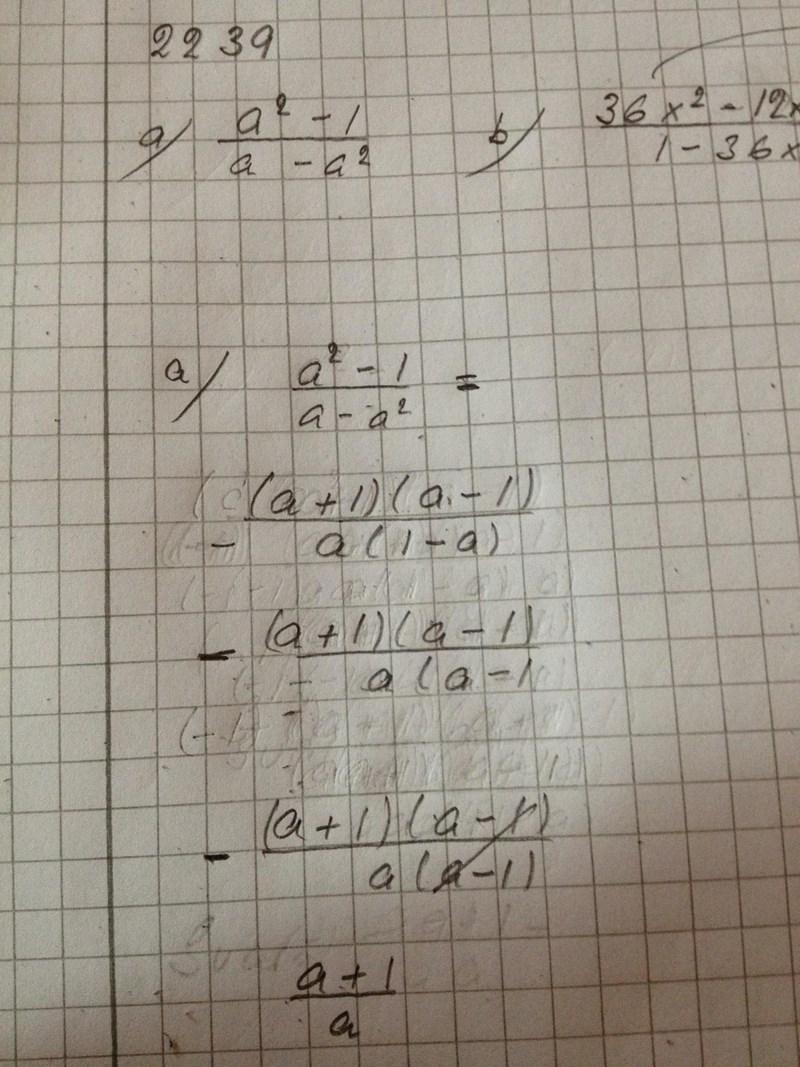 2239
a/ (a² - 1)/(a - a²)   b/ (36x² - 12x)/(1 - 36x)
a/ (a² - 1)/(a - a²) =
- (a+1)(a-1)
a(1-a)
- (a+1)(a-1)
a(a-1
- (a+1)(a-1)
a(a-1)
a+1
a